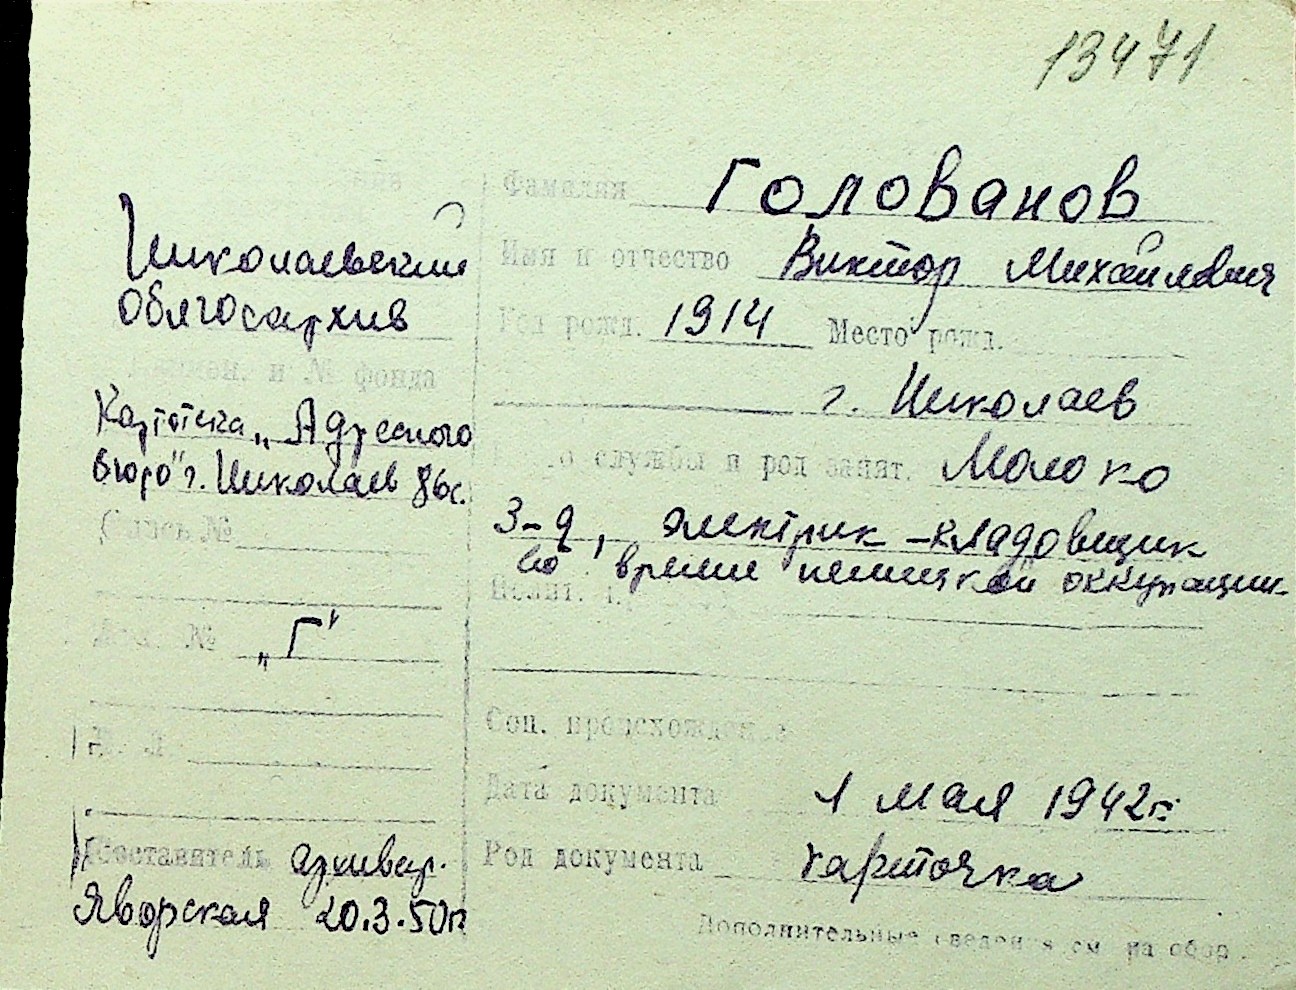 13471
Николаевский
Облгосархив
и № фонда
Картотека „Адресного
бюро" г. Николаев 86с.
Опись №
№ „Г"
Составитель архивар.
Яворская 20.3.50г.
Фамилия Голованов
Имя и отчество Виктор Михайлович
Год рожд. 1914 Место рожд.
г. Николаев
службы и род занят. Молоко
з-д, электрик-кладовщик
во время немецкой оккупации
Соц. происхождение
Дата документа 1 мая 1942г.
Род документа карточка
Дополнительные сведения см на обор.